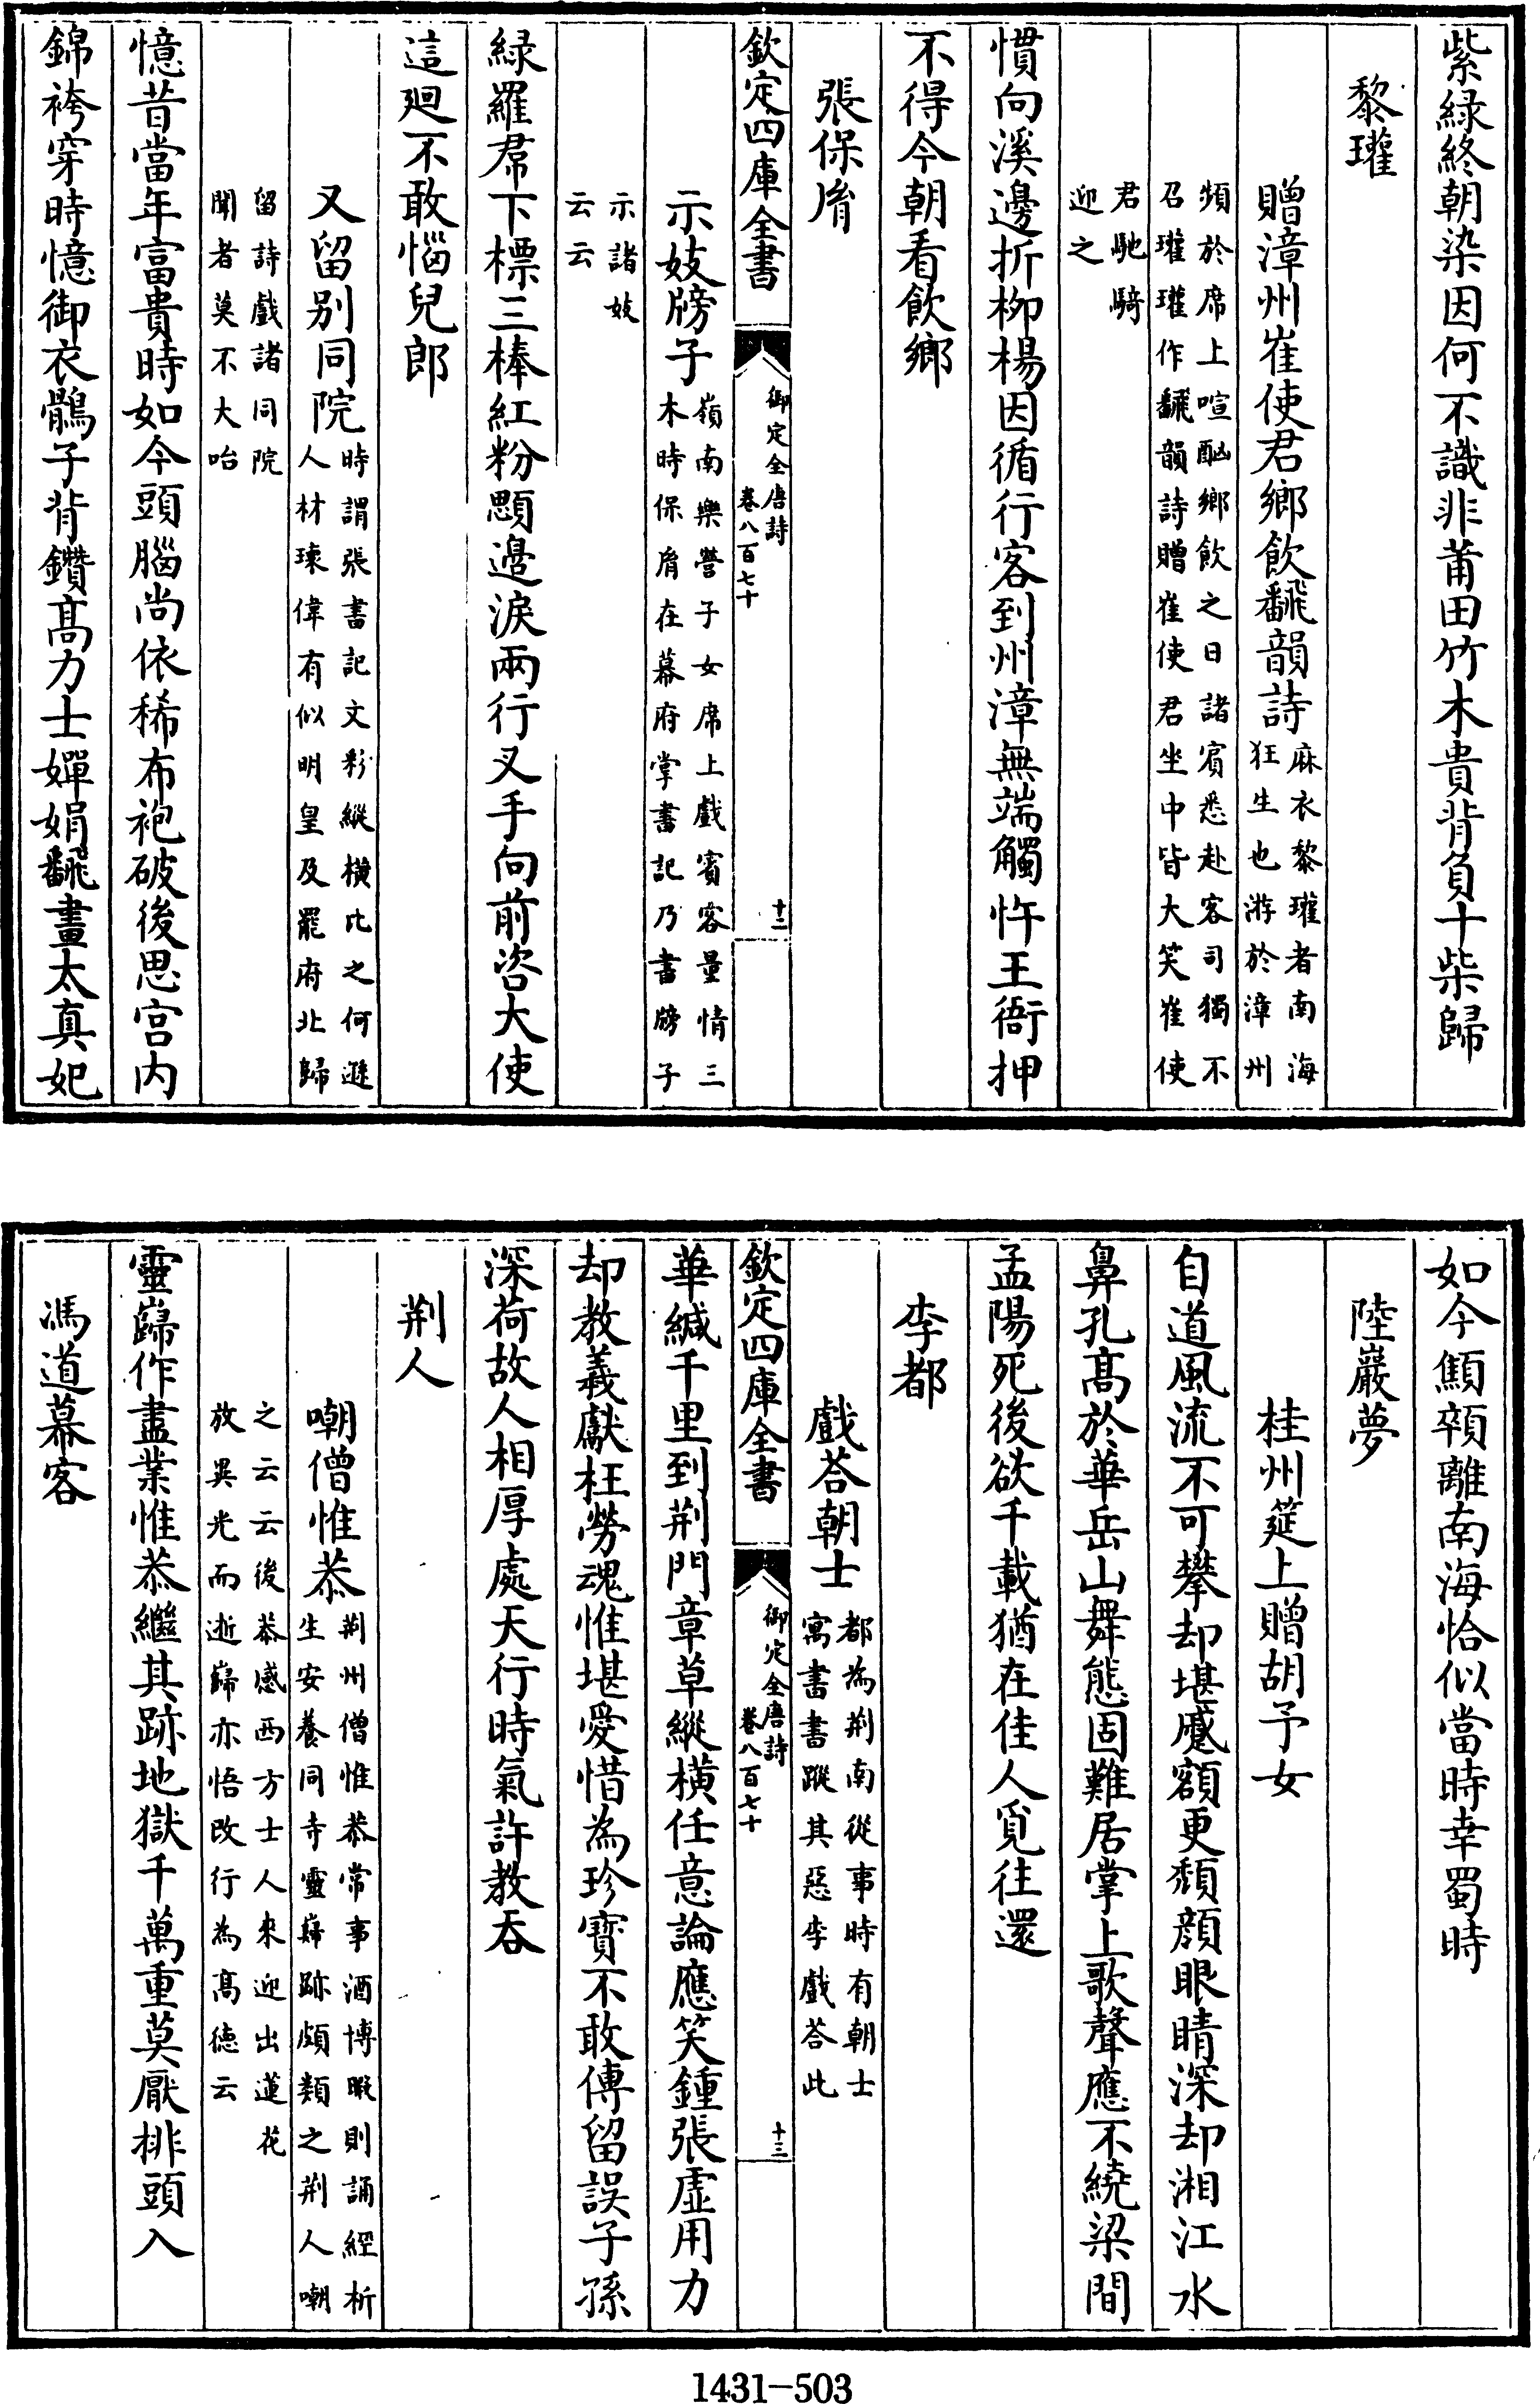 紫綠終朝染因何不識非莆田竹木貴背負十柴歸
黎瓘
贈漳州崔使君鄉飲飜韻詩
麻衣黎瓘者南海
狂生也游於漳州
頻於席上喧酗鄉飲之日諸賓悉赴客司獨不
召瓘瓘作飜韻詩贈崔使君坐中皆大笑崔使
君馳騎
迎之
慣向溪邊折柳楊因循行客到州漳無端觸忤王衙押
不得今朝看飲鄉
張保胤
欽定四庫全書
御定全唐詩
卷八百七十
十二
示妓牓子
嶺南樂營子女席上戲賓客量情三
木時保胤在幕府掌書記乃書牓子
示諸妓
云云
綠羅帬下標三棒紅粉顋邊淚兩行叉手向前咨大使
這迴不敢惱兒郎
又留别同院
時謂張書記文彩縱橫比之何遜
人材瓌偉有似明皇及罷府北歸
留詩戲諸同院
聞者莫不大咍
憶昔當年富貴時如今頭腦尚依稀布袍破後思宫内
錦袴穿時憶御衣鶻子背鑽高力士嬋娟飜畫太真妃
如今顦顇離南海恰似當時幸蜀時
陸巖夢
桂州筵上贈胡予女
自道風流不可攀却堪蹙額更頽顔眼睛深却湘江水
鼻孔高於華岳山舞態固難居掌上歌聲應不繞梁間
孟陽死後欲千載猶在佳人覓往還
李都
戲荅朝士
都為荆南從事時有朝士
寓書書蹤其惡李戲荅此
欽定四庫全書
御定全唐詩
卷八百七十
十三
華緘千里到荆門章草縱橫任意論應笑鍾張虚用力
却教羲獻枉勞魂惟堪愛惜為珍寶不敢傳留誤子孫
深荷故人相厚處天行時氣許教吞
荆人
嘲僧惟恭
荆州僧惟恭常事酒博暇則誦經祈
生安養同寺靈巋跡頗類之荆人嘲
之云云後恭感西方士人來迎出蓮花
放異光而逝巋亦悟改行為高德云
靈巋作盡業惟恭繼其跡地獄千萬重莫厭排頭入
馮道幕客
1431-503